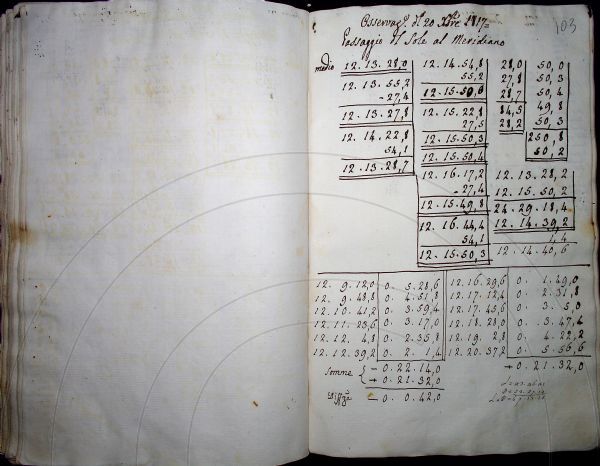 103
Osservaz.e del 20 Xbre 1817=
Passaggio del Sole al Meridiano
medio 12.13.28,0 12.14.54,8 28,0 50,3
12.13.55,2 55,2 27,8 50,3
-27,4 12.15.50,6 28,7 50,4
12.13.27,8 12.15.22,8 84,5 49,8
12.14.22,8 27,5 28,2 50,3
54,1 12.15.50,3 250,8
12.13.28,7 12.15.50,4 50,2
12.16.17,2 12.13.28,2
-27,4 12.15.50,2
12.15.49,8 24.29.18,4
12.16.44,4 12.14.39,2
54,1 1,4
12.15.50,3 12.14.40,6
12.9.12,0 0.5.28,6 12.16.29,6 0.1.49,0
12.9.48,8 0.4.51,8 12.17.12,4 0.2.31,8
12.10.41,2 0.3.59,4 12.17.45,6 0.3.5,0
12.11.23,6 0.3.17,0 12.18.28,0 0.3.47,4
12.12.4,8 0.2.35,8 12.19.2,8 0.4.22,2
12.12.39,2 0.2.1,4 12.20.37,2 0.5.56,6
Somme -0.22.14,0 +0.21.32,0
+0.21.32,0
Diffza -0.0.42,0